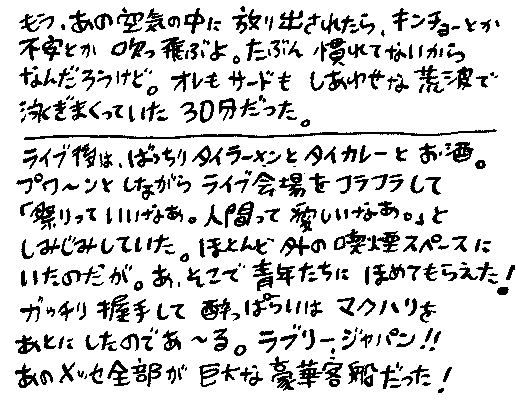 もう、あの空気の中に放り出されたら、キンチョーとか
不安とか吹っ飛ぶよ。たぶん慣れてないから
なんだろうけど。オレもサードもしあわせな荒波で
泳ぎまくっていた30分だった。
ライブ後は、ばっちりタイラーメンとタイカレーとお酒。
プワ〜ンとしながらライブ会場をフラフラして
「祭りっていいなあ。人間って愛しいなあ。」と
しみじみしていた。ほとんど外の喫煙スペースに
いたのだが。あ、そこで青年たちにほめてもらえた!
ガッチリ握手して酔っぱらいはマクハリを
あとにしたのであ〜る。ラブリージャパン!!
あのメッセ全部が巨大な豪華客船だった!